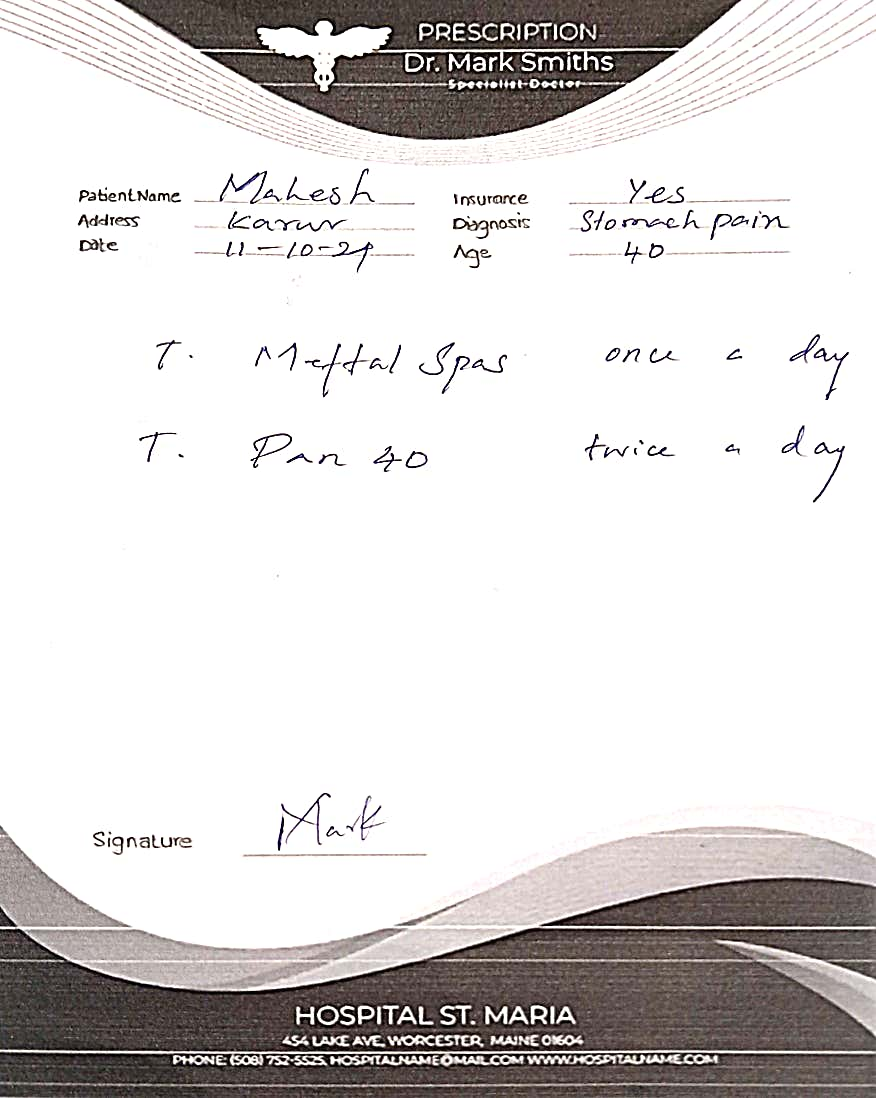 PRESCRIPTION
Dr. Mark Smiths
Specialist Doctor
Patient Name Mahesh Insurance Yes
Address Karur Diagnosis Stomach pain
Date 11-10-24 Age 40
T. Meftal Spas once a day
T. Pan 40 twice a day
Signature Mark
HOSPITAL ST. MARIA
454 LAKE AVE, WORCESTER, MAINE 01604
PHONE: (508) 752-5525, HOSPITALNAME@MAIL.COM WWW.HOSPITALNAME.COM